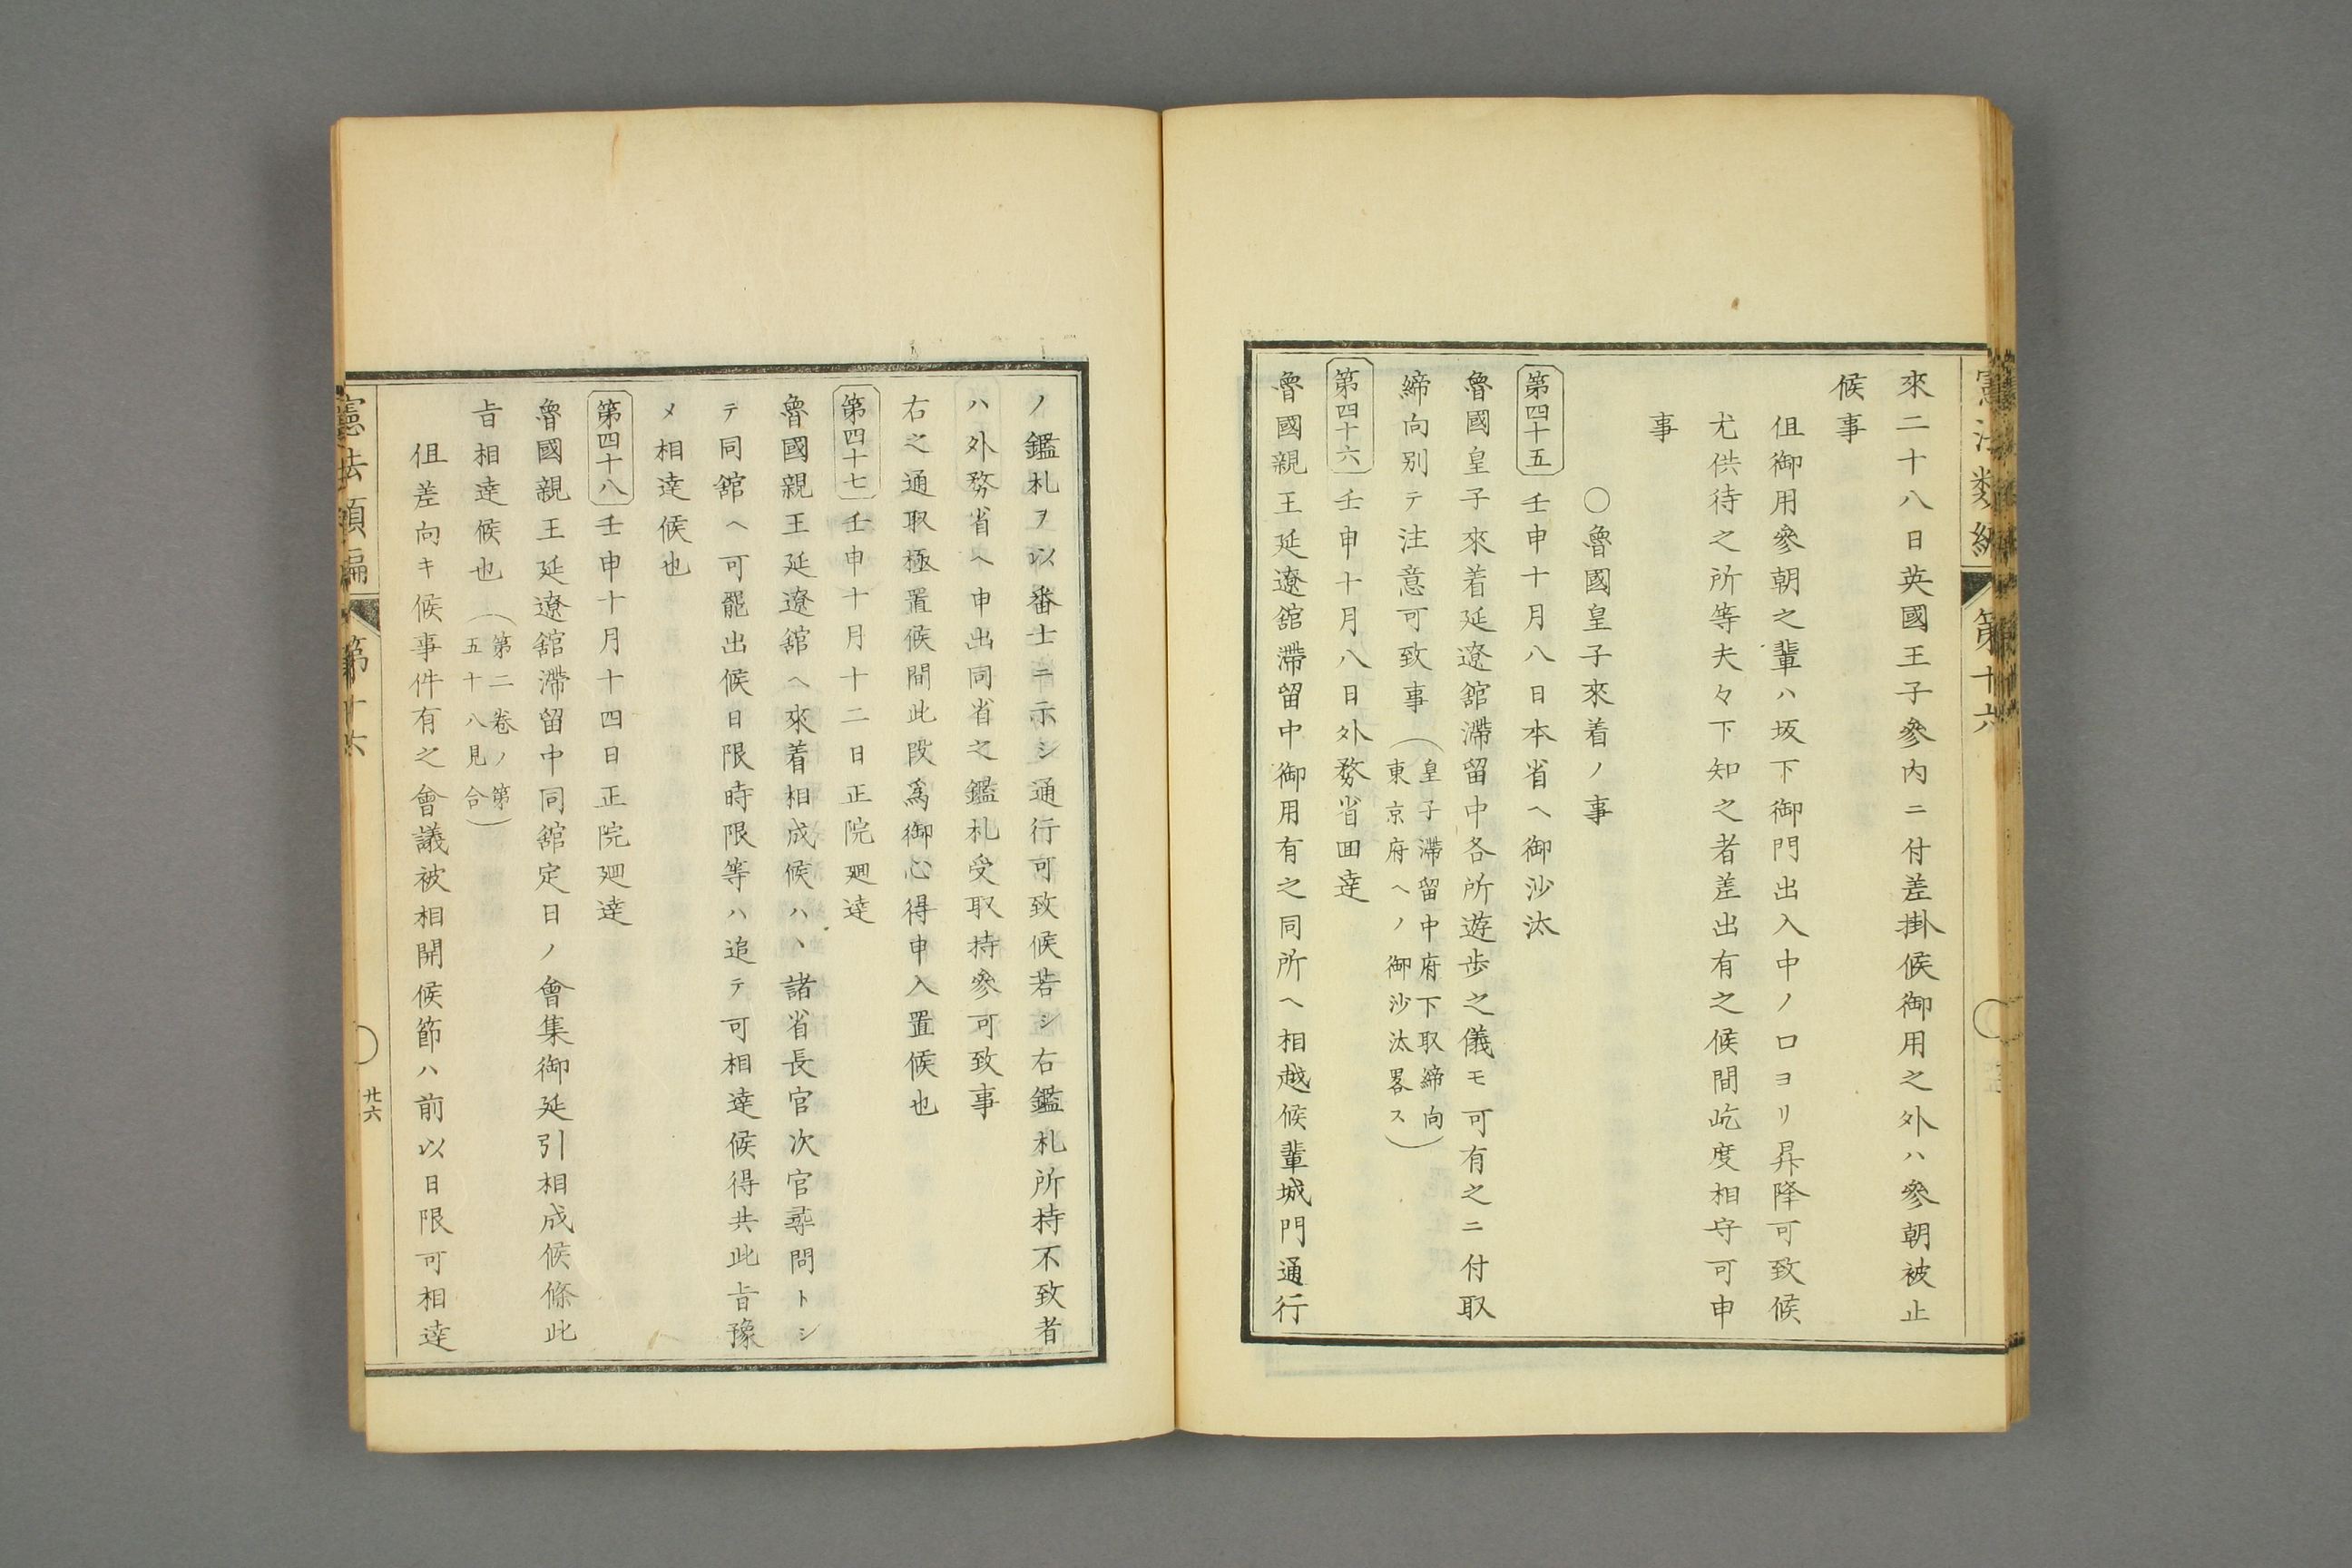 憲法類編　第十六
來二十八日英國王子參内ニ付差掛候御用之外ハ參朝被止
候事
但御用參朝之輩ハ坂下御門出入中ノ口ヨリ昇降可致候
尤供待之所等夫々下知之者差出有之候間屹度相守可申
事
○魯國皇子來着ノ事
第四十五　壬申十月八日本省ヘ御沙汰
魯國皇子來着延遼舘滯留中各所遊歩之儀モ可有之ニ付取
締向別テ注意可致事（皇子滯留中府下取締向
東京府ヘノ御沙汰畧ス）
第四十六　壬申十月八日外務省囬逹
魯國親王延遼舘滯留中御用有之同所ヘ相越候輩城門通行
ノ鑑札ヲ以番士ニ示シ通行可致候若シ右鑑札所持不致者
ハ外務省ヘ申出同省之鑑札受取持參可致事
右之通取極置候間此段爲御心得申入置候也
第四十七　壬申十月十二日正院廻逹
魯國親王延遼舘ヘ來着相成候ハヽ諸省長官次官尋問トシ
テ同舘ヘ可罷出候日限時限等ハ追テ可相逹候得共此旨豫
メ相逹候也
第四十八　壬申十月十四日正院廻逹
魯國親王延遼舘滯留中同舘定日ノ會集御延引相成候條此
旨相逹候也（第二卷ノ第
五十八見合）
但差向キ候事件有之會議被相開候節ハ前以日限可相逹
憲法類編　第十六　廿六